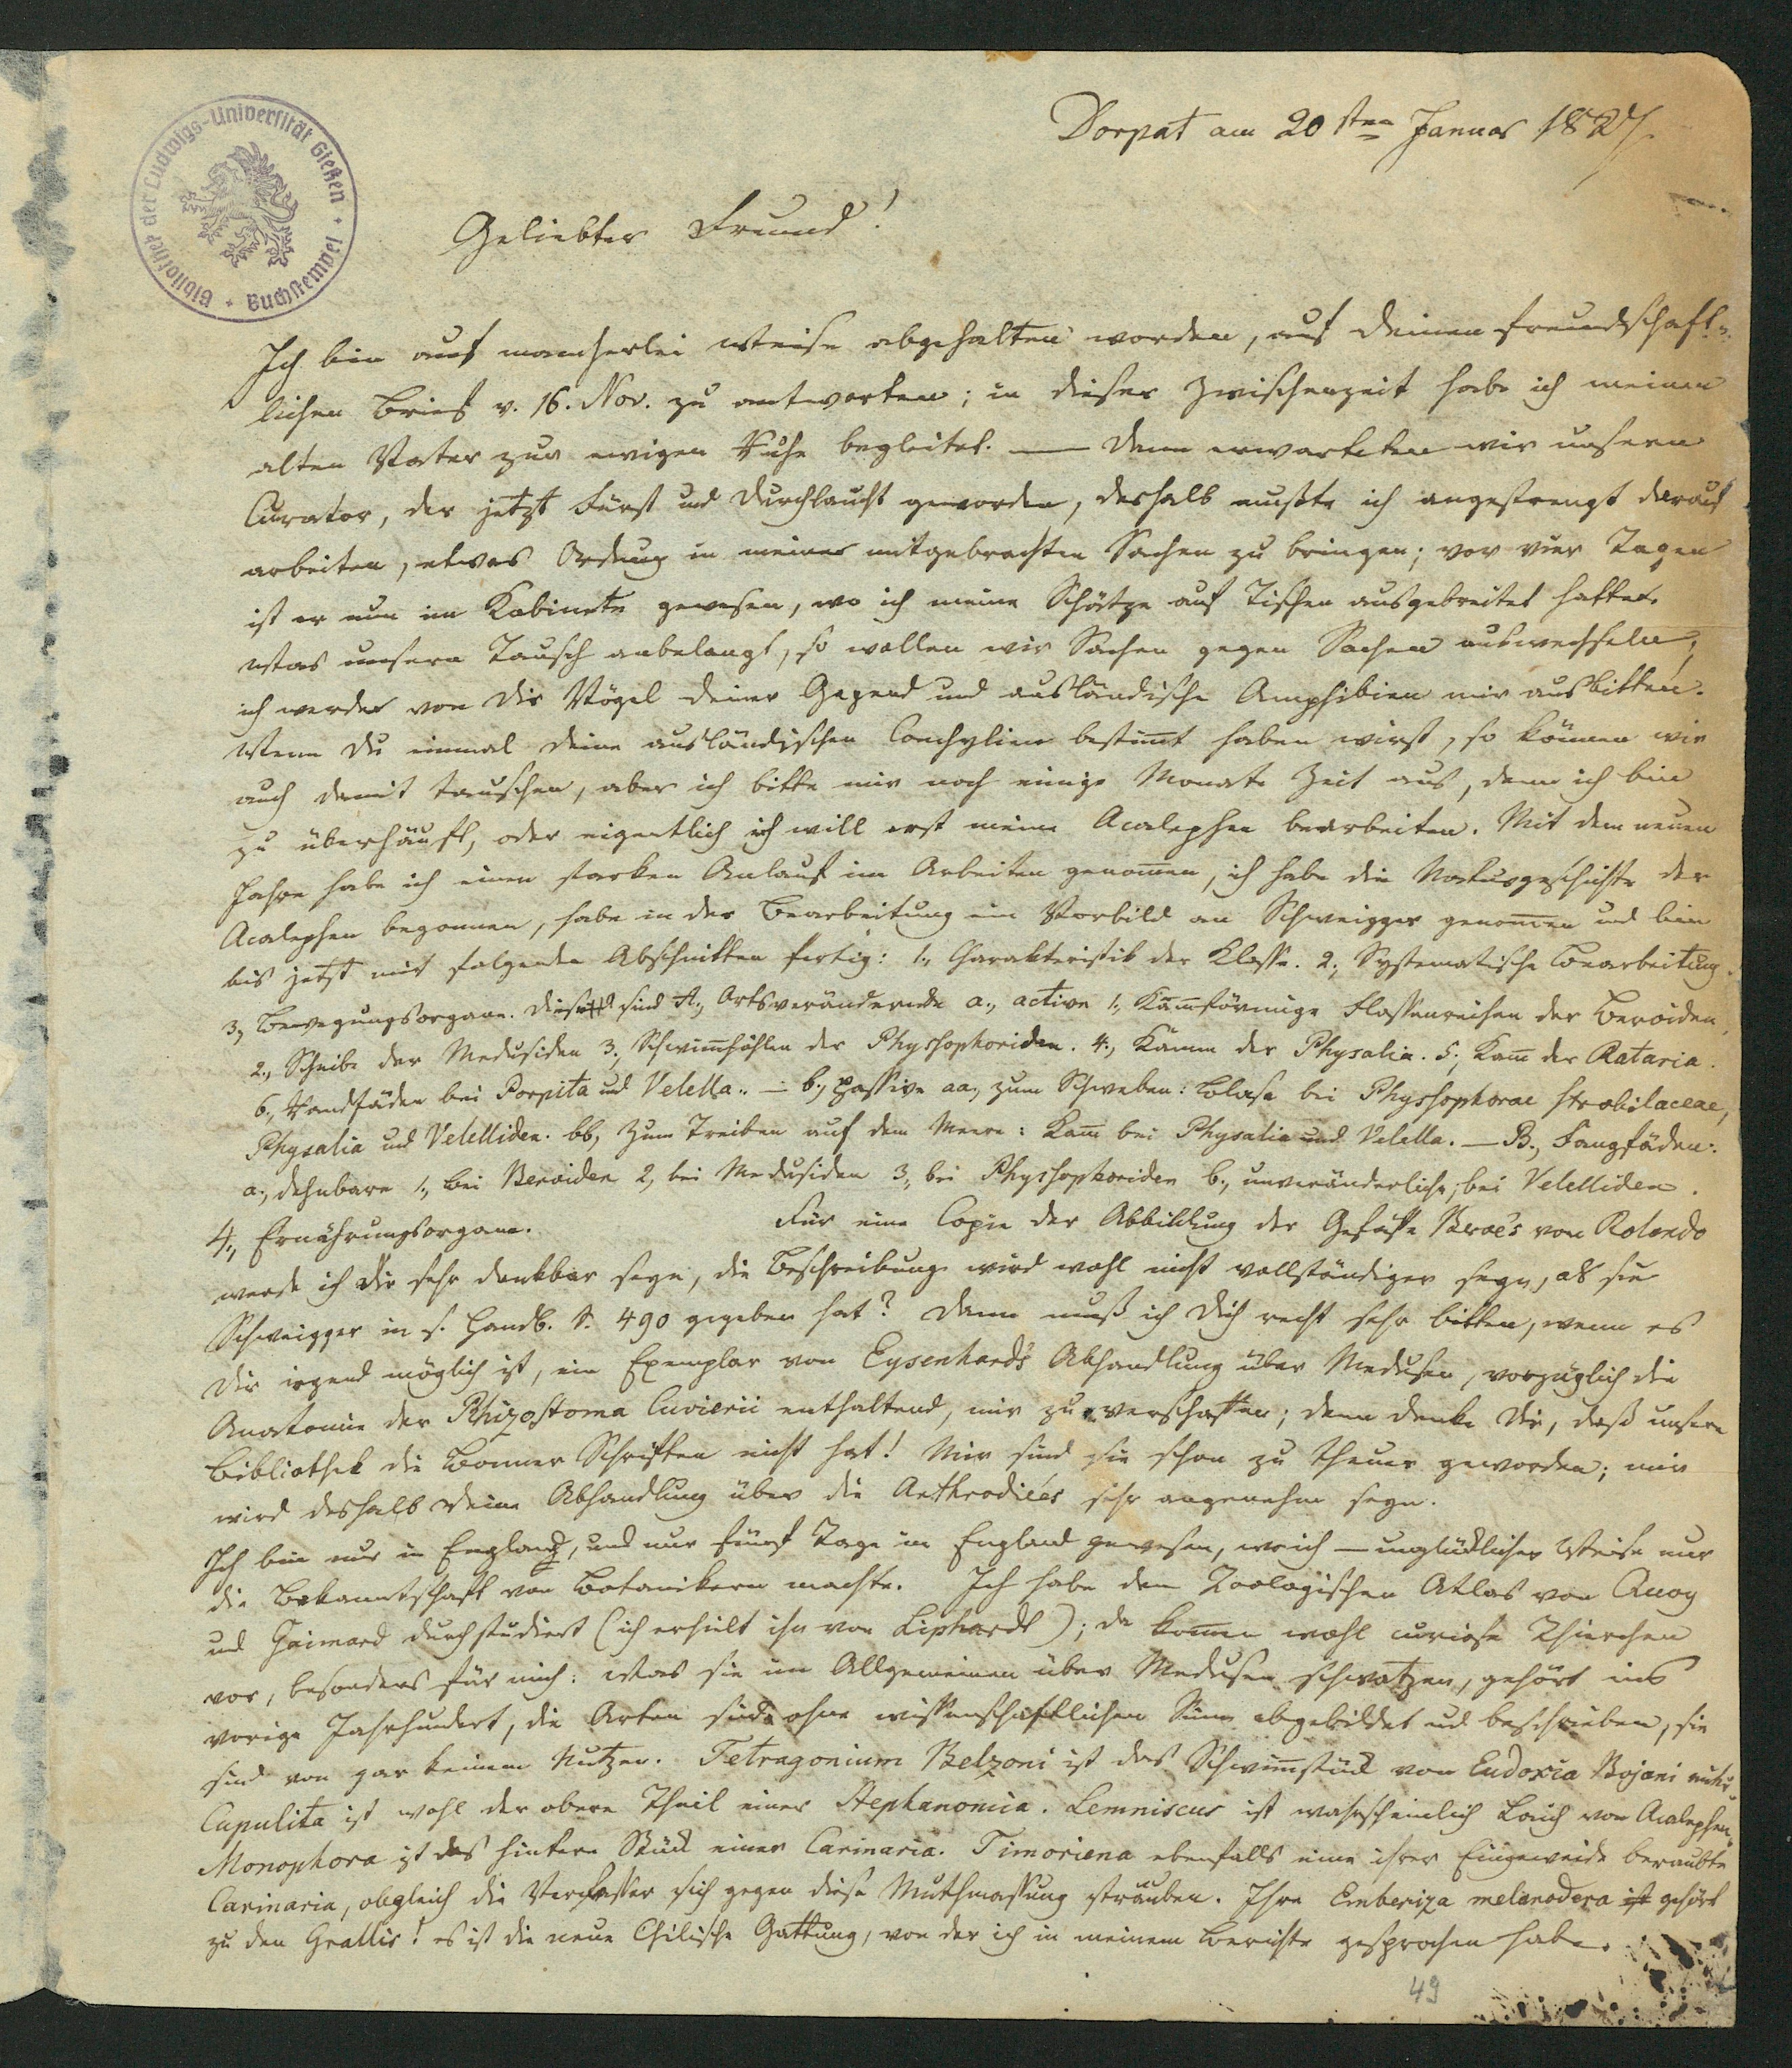 Bibliothek der Ludwigs-Universität Gießen · Buchstempel ·
Dorpat am 20sten Januar 1827.
Geliebter Freund!
Ich bin auf mancherlei Weise abgehalten worden, auf Deinen freundschaft-
lichen Brief v. 16. Nov. zu antworten; in dieser Zwischenzeit habe ich meinen
alten Vater zur ewigen Ruhe begleitet. — Dann erwarteten wir unsern
Curator, der jetzt Fürst und Durchlaucht geworden, deshalb mußte ich angestrengt darauf
arbeiten, etwas Ordnung in meine mitgebrachten Sachen zu bringen; vor vier Tagen
ist er nun im Kabinete gewesen, wo ich meine Schätze auf Tischen ausgebreitet hatte.
Was unsern Tausch anbelangt, so wollen wir Sachen gegen Sachen auswechseln;
ich werde von Dir Vögel Deiner Gegend und ausländische Amphibien mir ausbitten.
Wenn Du einmal Deine ausländischen Conchylien bestimt haben wirst, so können wir
auch damit tauschen, aber ich bitte mir noch einige Monate Zeit aus, denn ich bin
zu überhäuft, oder eigentlich ich will erst meine Acalephen bearbeiten. Mit dem neuen
Jahre habe ich einen starken Anlauf im Arbeiten genomen, ich habe die Naturgeschichte der
Acalephen begonnen, habe in der Bearbeitung ein Vorbild an Schweigger genomen und bin
bis jetzt mit folgenden Abschnitten fertig: 1., Charakteristik der Klasse. 2., Systematische Bearbeitung.
3., Bewegungsorgane. Diese sind A., Ortsverändernde a., active 1., Kamförmige Flossenreihen der Beroiden,
2., Scheibe der Medusiden 3., Schwimhöhlen der Physsophoriden. 4., Kämme der Physalia. 5., Kam der Rataria.
6., Randfäden bei Porpita und Velella. — b., passive aa., zum Schweben: Blase bei Physsophorae strobilaceae,
Physalia und Velelliden. bb, zum Treiben auf dem Meere: Kam bei Physalia und Velella. — B., Fangfäden:
a., dehnbare 1., bei Beroiden 2, bei Medusiden 3., bei Physsophoriden b., unveränderliche, bei Velelliden.
4., Ernährungsorgane. Für eine Copie der Abbildung der Gefäße Beroe's von Rolando
werde ich Dir sehr dankbar seyn, die Beschreibung wird wohl nicht vollständiger seyn, als sie
Schweigger in s. Handb. S. 490 gegeben hat? Dann muß ich Dich recht sehr bitten, wenn es
Dir irgend möglich ist, ein Exemplar von Eysenhardt's Abhandlung über Medusen, vorzüglich die
Anatomie der Rhizostoma Cuvierii enthaltend, mir zu verschaffen; denn denke Dir, daß unsere
Bibliothek die Bonner Schriften nicht hat! Mir sind sie schon zu theuer geworden; mir
wird deshalb Deine Abhandlung über die Arthrodiées sehr angenehm seyn.
Ich bin nur in England, und nur fünf Tage in England gewesen, wo ich — unglücklicher Weise nur
die Bekanntschaft von Botanikern machte. Ich habe den Zoologischen Atlas von Quoy
und Gaimard durchstudiert (ich erhielt ihn von Liphardt); da komen wohl curiose Thierchen
vor, besonders für mich: was sie im Allgemeinen über Medusen schwatzen, gehört ins
vorige Jahrhundert, die Arten sind ohne wissenschaftlichen Sinn abgebildet und beschrieben, sie
sind von gar keinem Nutzen. Tetragonium Belzoni ist das Schwimstück von Eudoxia Bojani mihi.
Cupulita ist wohl der obere Theil einer Stephanomia. Lemniscus ist wahrscheinlich Laich von Acalephen.
Monophora ist das hintere Stück einer Carinaria. Timoriena ebenfalls eine ihrer Eingeweide beraubte
Carinaria, obgleich die Verfasser sich gegen diese Muthmassung sträuben. Ihre Emberiza melanodera ist gehört
zu den Grallis! es ist die neue Chilische Gattung, von der ich in meinem Berichte gesprochen habe.
49